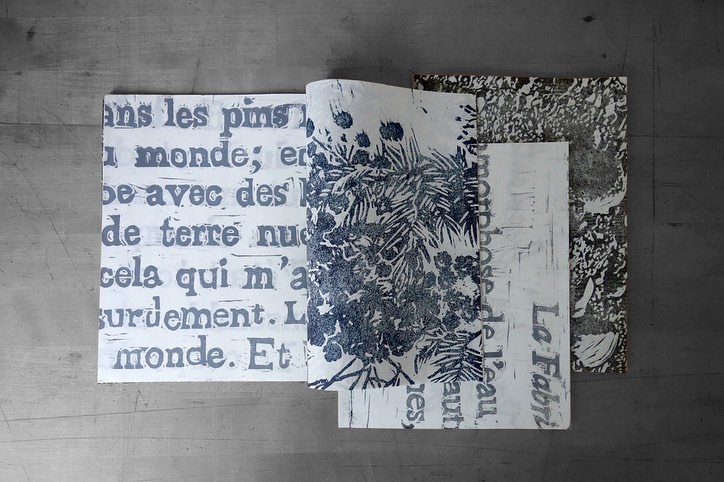 ans les pins
monde; e
avec des
de terre nu
cela qui m'a
surdement. L
monde. Et
morphose de l'eau
aut
res,
La Fabri